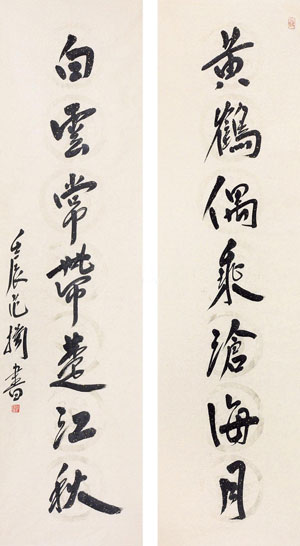 黃鶴偶乘滄海月
白雲常帶楚江秋
壬辰范書